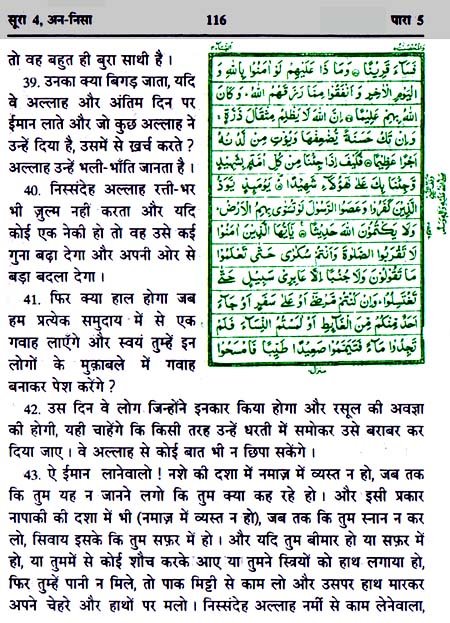 सूरा 4, अन-निसा 116 पारा 5
तो वह बहुत ही बुरा साथी है।
39. उनका क्या बिगड़ जाता, यदि
वे अल्लाह और अंतिम दिन पर
ईमान लाते और जो कुछ अल्लाह ने
उन्हें दिया है, उसमें से ख़र्च करते ?
अल्लाह उन्हें भली-भाँति जानता है।
40. निस्संदेह अल्लाह रत्ती-भर
भी ज़ुल्म नहीं करता और यदि
कोई एक नेकी हो तो वह उसे कई
गुना बढ़ा देगा और अपनी ओर से
बड़ा बदला देगा।
41. फिर क्या हाल होगा जब
हम प्रत्येक समुदाय में से एक
गवाह लाएँगे और स्वयं तुम्हें इन
लोगों के मुक़ाबले में गवाह
बनाकर पेश करेंगे ?
فَسَآءَ قَرِيْنًا وَمَا ذَا عَلَيْهِمْ لَوْ اٰمَنُوْا بِاللّٰهِ وَ
الْيَوْمِ الْاٰخِرِ وَاَنْفَقُوْا مِمَّا رَزَقَهُمُ اللّٰهُ وَكَانَ
اللّٰهُ بِهِمْ عَلِيْمًا اِنَّ اللّٰهَ لَا يَظْلِمُ مِثْقَالَ ذَرَّةٍ
وَاِنْ تَكُ حَسَنَةً يُّضٰعِفْهَا وَيُؤْتِ مِنْ لَّدُنْهُ
اَجْرًا عَظِيْمًا فَكَيْفَ اِذَا جِئْنَا مِنْ كُلِّ اُمَّةٍ بِشَهِيْدٍ
وَّجِئْنَا بِكَ عَلٰى هٰٓؤُلَآءِ شَهِيْدًا يَوْمَئِذٍ يَّوَدُّ
الَّذِيْنَ كَفَرُوْا وَعَصَوُا الرَّسُوْلَ لَوْ تُسَوّٰى بِهِمُ الْاَرْضُ
وَلَا يَكْتُمُوْنَ اللّٰهَ حَدِيْثًا يٰٓاَيُّهَا الَّذِيْنَ اٰمَنُوْا
لَا تَقْرَبُوا الصَّلٰوةَ وَاَنْتُمْ سُكٰرٰى حَتّٰى تَعْلَمُوْا
مَا تَقُوْلُوْنَ وَلَا جُنُبًا اِلَّا عَابِرِيْ سَبِيْلٍ حَتّٰى
تَغْتَسِلُوْا وَاِنْ كُنْتُمْ مَّرْضٰٓى اَوْ عَلٰى سَفَرٍ اَوْ جَآءَ
اَحَدٌ مِّنْكُمْ مِّنَ الْغَآئِطِ اَوْ لٰمَسْتُمُ النِّسَآءَ فَلَمْ
تَجِدُوْا مَآءً فَتَيَمَّمُوْا صَعِيْدًا طَيِّبًا فَامْسَحُوْا
42. उस दिन वे लोग जिन्होंने इनकार किया होगा और रसूल की अवज्ञा
की होगी, यही चाहेंगे कि किसी तरह उन्हें धरती में समोकर उसे बराबर कर
दिया जाए। वे अल्लाह से कोई बात भी न छिपा सकेंगे।
43. ऐ ईमान लानेवालो ! नशे की दशा में नमाज़ में व्यस्त न हो, जब तक
कि तुम यह न जानने लगो कि तुम क्या कह रहे हो। और इसी प्रकार
नापाकी की दशा में भी (नमाज़ में व्यस्त न हो), जब तक कि तुम स्नान न कर
लो, सिवाय इसके कि तुम सफ़र में हो। और यदि तुम बीमार हो या सफ़र में
हो, या तुममें से कोई शौच करके आए या तुमने स्त्रियों को हाथ लगाया हो,
फिर तुम्हें पानी न मिले, तो पाक मिट्टी से काम लो और उसपर हाथ मारकर
अपने चेहरे और हाथों पर मलो। निस्संदेह अल्लाह नर्मी से काम लेनेवाला,